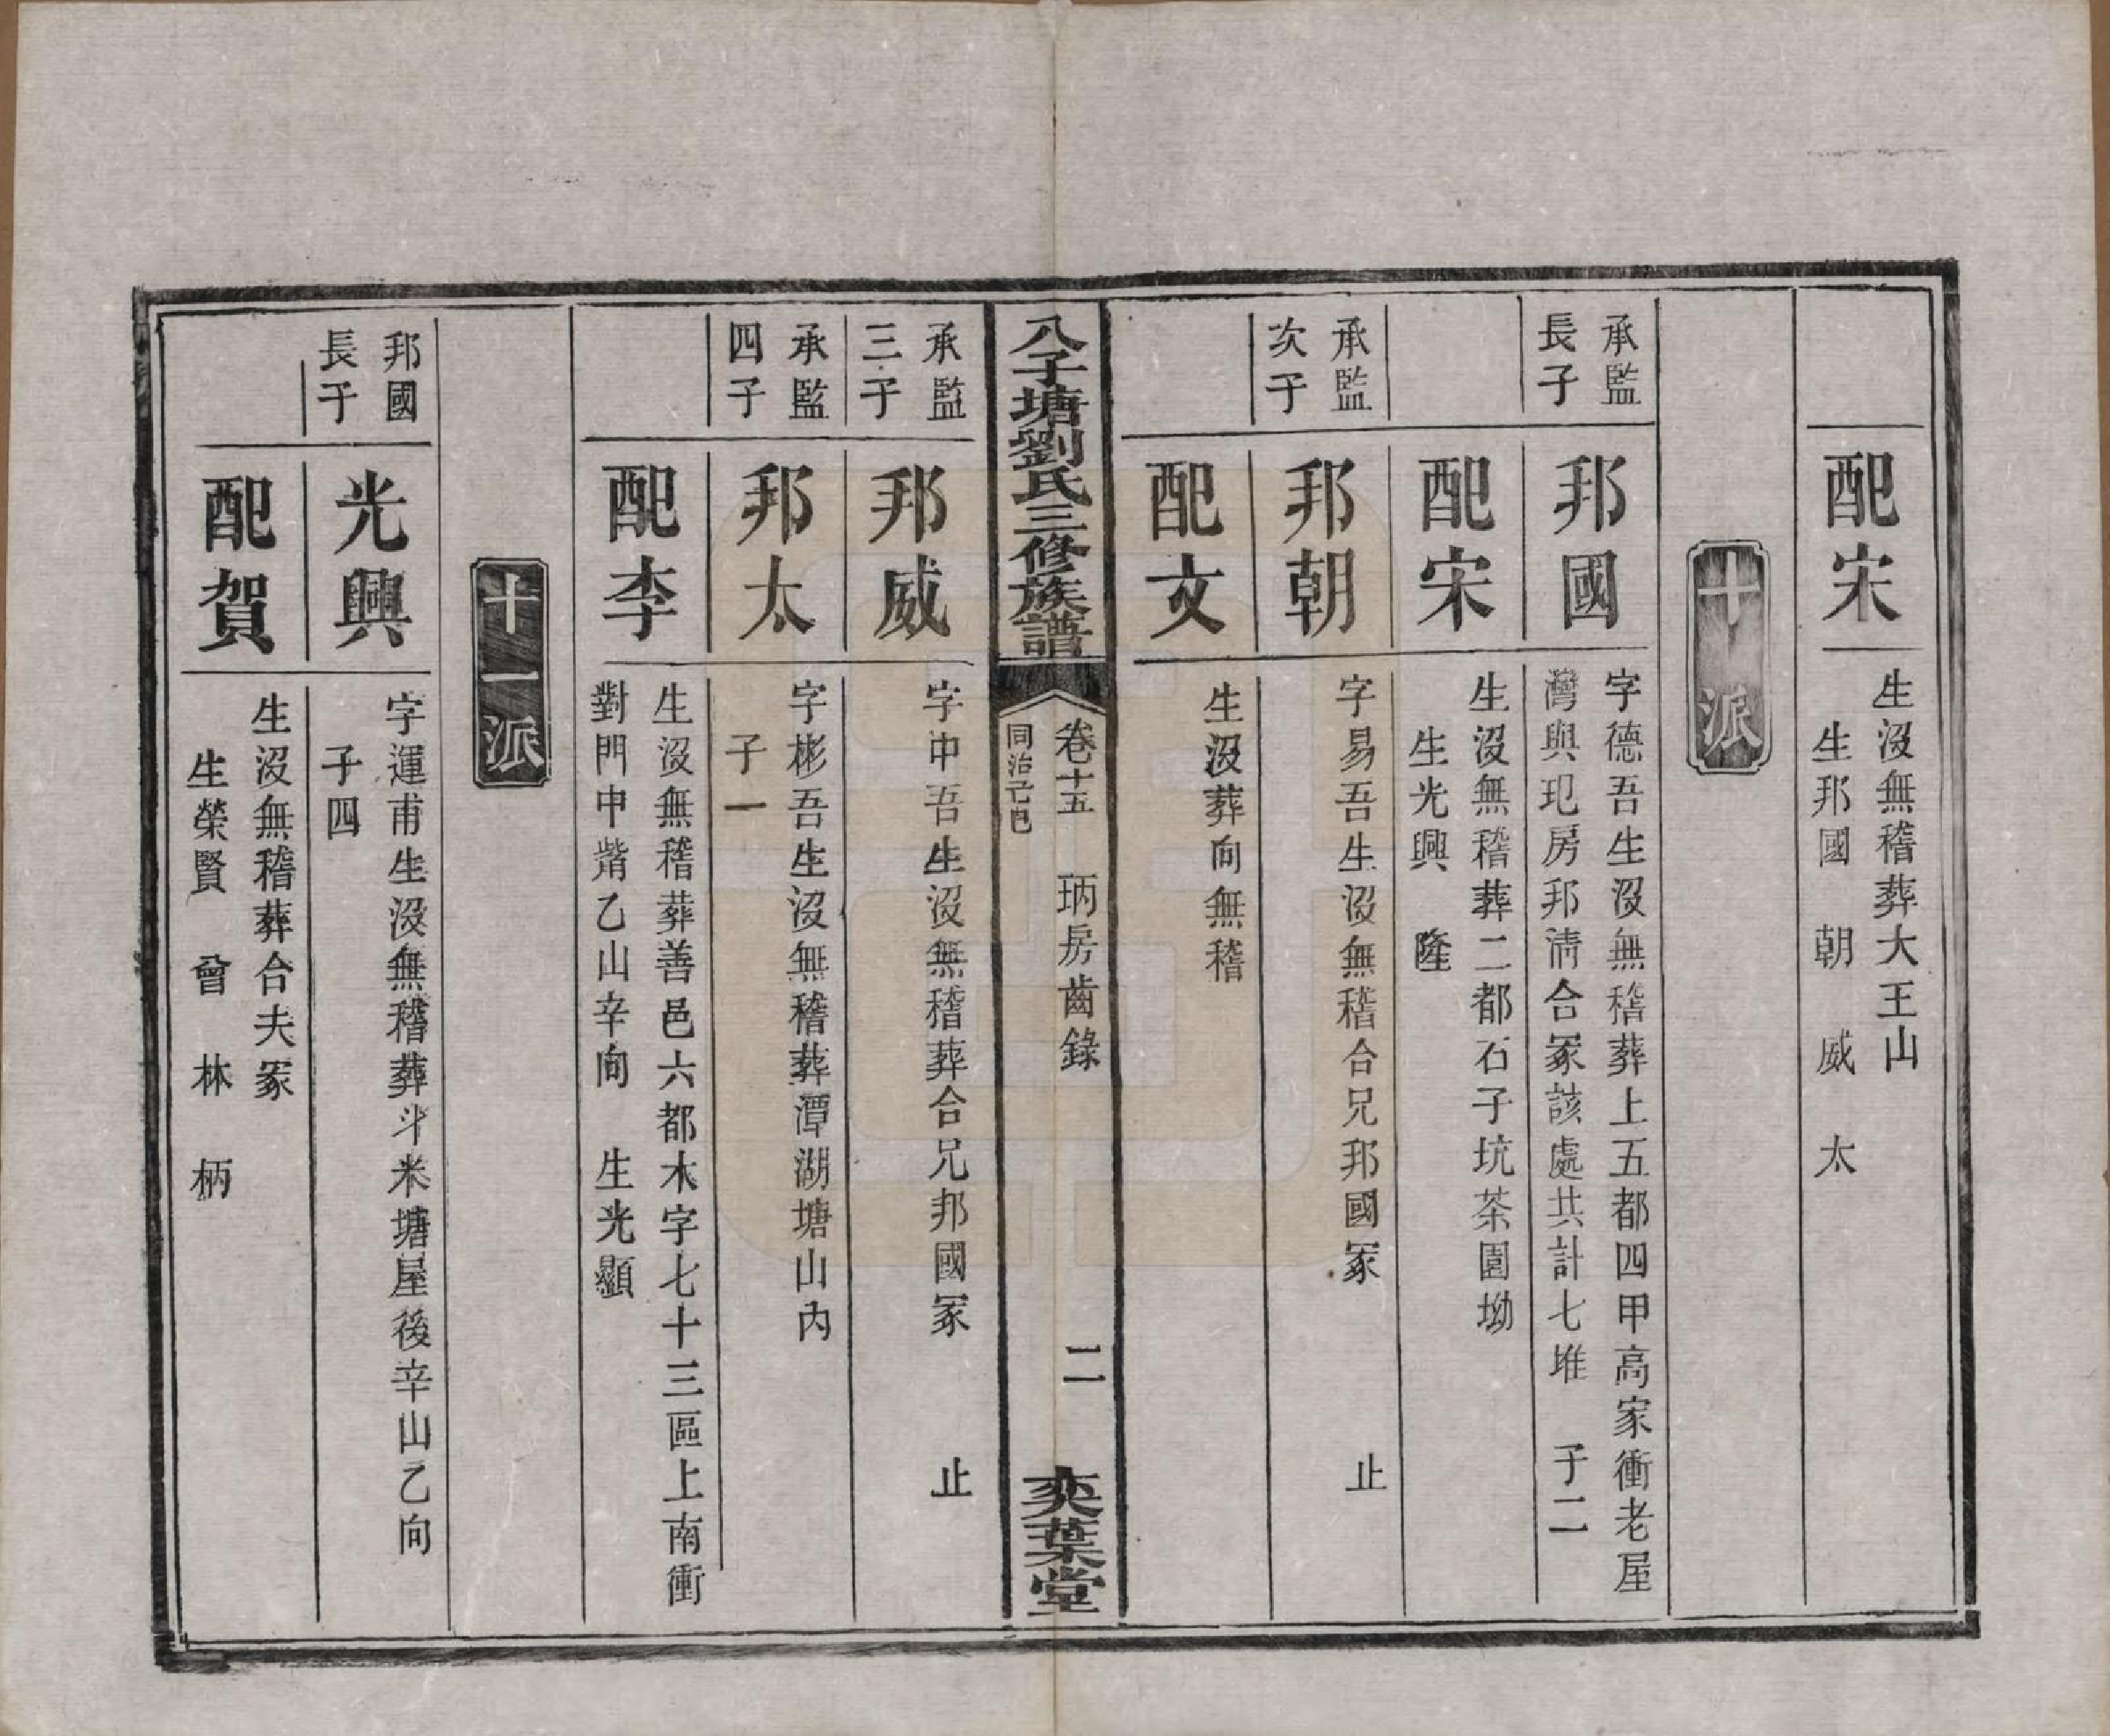 配宋
生沒無稽葬大王山
生邦國 朝 威 太
十派
承監
長子
邦國
字德吾生沒無稽葬上五都四甲高家衝老屋
灣與玘房邦淸合冢該處共計七堆 子二
配宋
生沒無稽葬二都石子坑茶園坳
生光興 隆
承監
次子
邦朝
字易吾生沒無稽合兄邦國冢 止
配文
生沒葬向無稽
八子塘劉氏三修族譜
卷十五 珦房齒錄
同治己巳
二
奕葉堂
承監
三子
邦威
字中吾生沒無稽葬合兄邦國冢 止
承監
四子
邦太
字彬吾生沒無稽葬潭湖塘山內
子一
配李
生沒無稽葬善邑六都木字七十三區上南衝
對門中觜乙山辛向 生光顯
十一派
邦國
長子
光興
字運甫生沒無稽葬斗米塘屋後辛山乙向
子四
配賀
生沒無稽葬合夫冢
生榮賢 會 林 柄